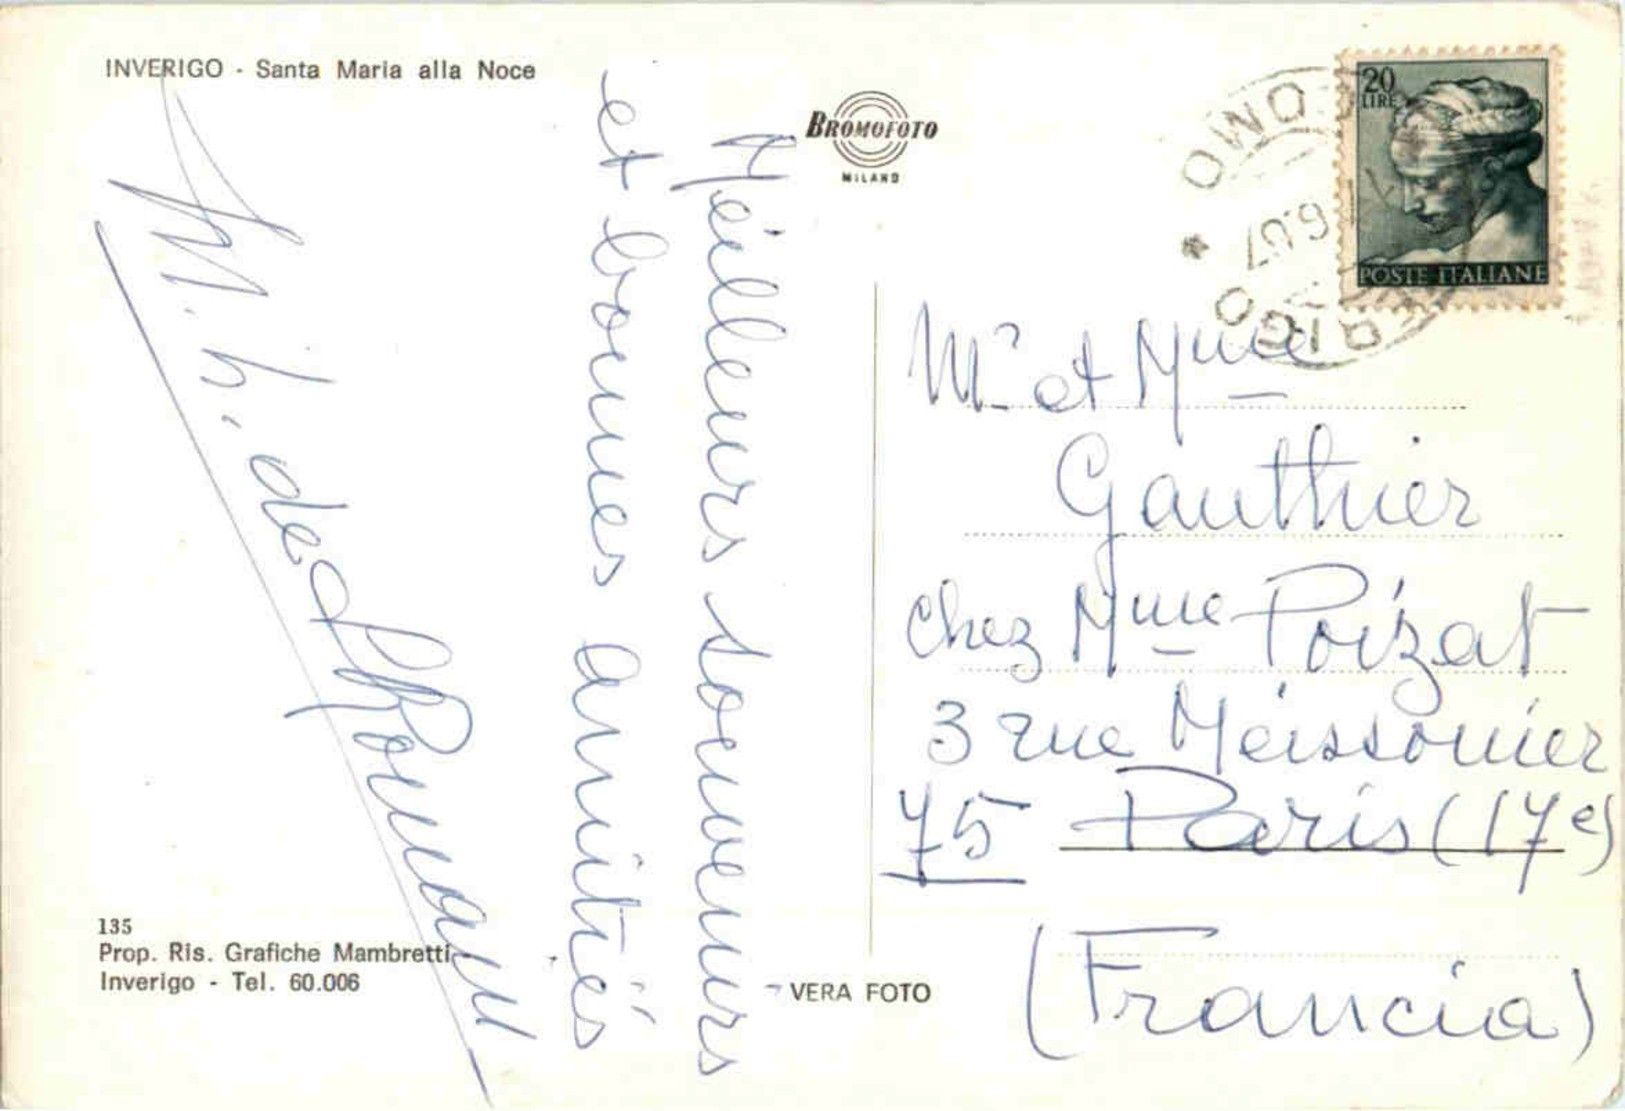 INVERIGO - Santa Maria alla Noce
BROMOFOTO
MILANO
20
LIRE
POSTE ITALIANE
Meilleurs souvenirs
et bonnes amitiés
M. h. de
Mr et Mme
Gauthier
chez Mme Poizat
3 rue Meissonier
75 Paris (17e)
(Francia)
135
Prop. Ris. Grafiche Mambretti
Inverigo - Tel. 60.006
VERA FOTO